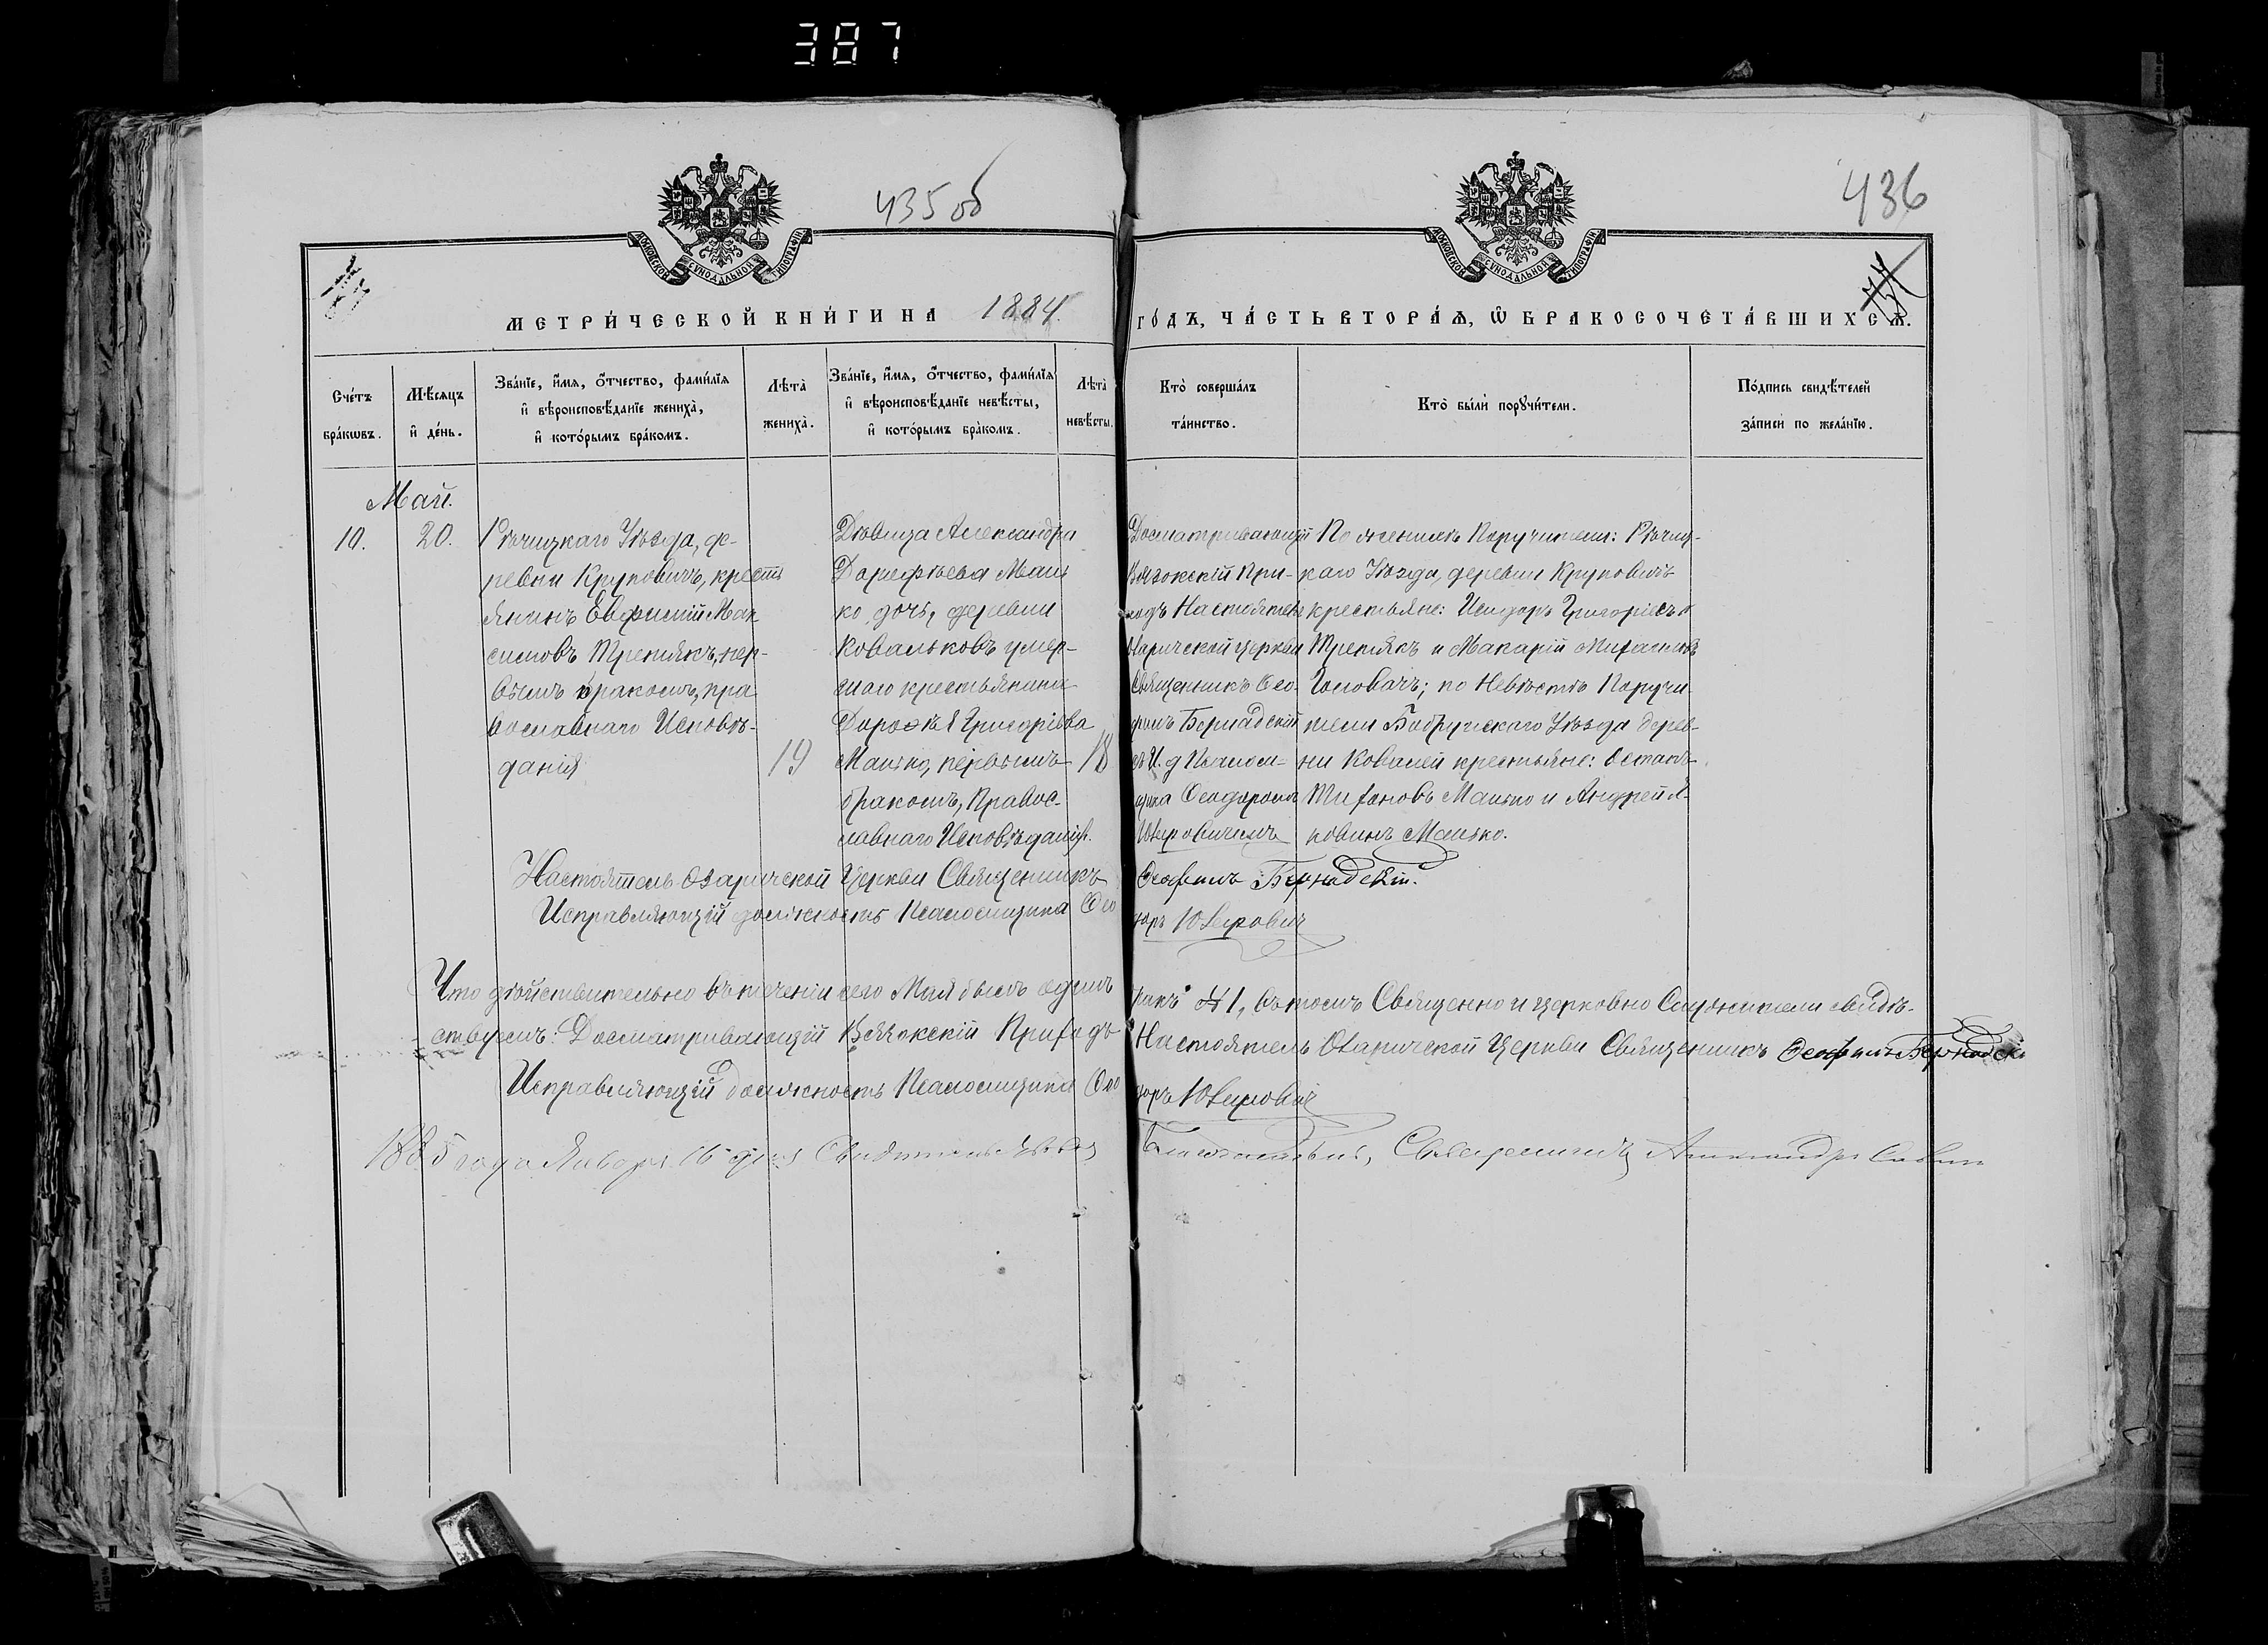 387
435 об
436
МОСКОВСКОЙ СѴНОДАЛЬНОЙ ТИПОГРАФІИ
МОСКОВСКОЙ СѴНОДАЛЬНОЙ ТИПОГРАФІИ
МЕТРИ́ЧЕСКОЙ КНИ́ГИ НА 1884 ГО́ДЪ, ЧА́СТЬ ВТОРА́Ѧ, Ѽ БРАКОСОЧЕТА́ВШИХСѦ.
Сче́тъ
бра́кѡвъ.
Мѣ́сяцъ
и҆ де́нь.
Зва́нїе, и҆́мя, ѻ҆́тчество, фами́лїя
и҆ вѣроисповѣ́данїе жениха̀,
и҆ кото́рымъ бра́комъ.
Лѣта̀
жениха̀.
Зва́нїе, и҆́мя, ѻ҆́тчество, фами́лїя
и҆ вѣроисповѣ́данїе невѣ́сты,
и҆ кото́рымъ бра́комъ.
Лѣта̀
невѣ́сты.
Кто̀ соверша́лъ
та́инство.
Кто̀ бы́ли порꙋчи́тели.
По́дпись свидѣ́телей
за́писи по жела́нїю.
Май.
10.
20.
Рѣчицкаго Уѣзда, де-
ревни Круповичъ, кресть
янинъ Евфимій Мак
симовъ Третякъ, пер-
вымъ бракомъ, пра
вославнаго Исповѣ-
данія
19
Дѣвица Александра
Дорофѣева Мань
ко дочь, деревни
Ковальковъ умер-
шаго крестьянина
Дорофѣя Григорьева
Манько, первымъ
бракомъ, Правос-
лавнаго Исповѣданія.
18
Досматривающій
При-
ходъ Настоятель
Озаричской церкви
Священникъ Ѳео-
филъ Бернадскій
съ И. д Псалом-
щика Ѳеодоромъ
По женихѣ Поручители: Рѣчиц-
каго Уѣзда, деревни Круповичъ
крестьяне: Исидоръ Григорьевъ
Третякъ и Макарій
Головачъ; по Невѣстѣ Поручи-
тели Бобруйскаго Уѣзда дерев-
ни Ковалей крестьяне:
Манько и Андрей Я-
ковинъ Манько.
Настоятель Озаричской Церкви Священникъ Ѳеофилъ Бернадскій.
Исправляющій должность Псаломщика Ѳео доръ
Что дѣйствительно въ теченіи сего Мая былъ одинъ бракъ № 1, въ томъ Священно и церковно Служители свидѣ-
ствуемъ: Досматривающій Приходъ Настоятель Озаричской Церкви Священникъ Ѳеофилъ Бернадскій
Исправляющій должность Псаломщика Ѳео доръ
1885 года Января 16 дня Благочинный, Священникъ Александръ